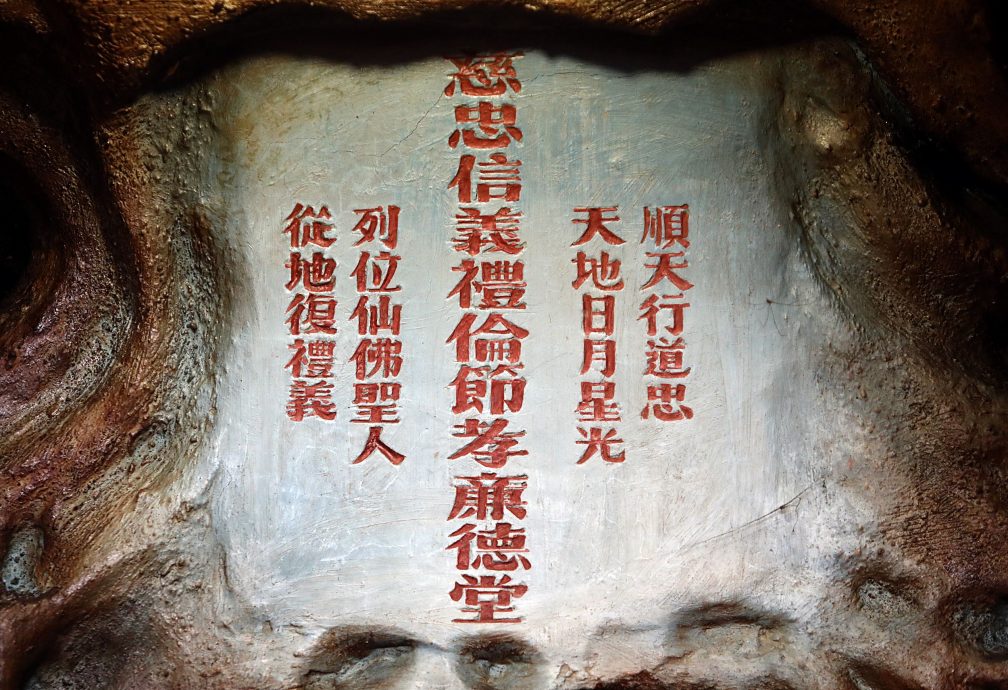 順天行道忠
天地日月星光
慈忠信義禮倫節孝廉德堂
列位仙佛聖人
從地復禮義